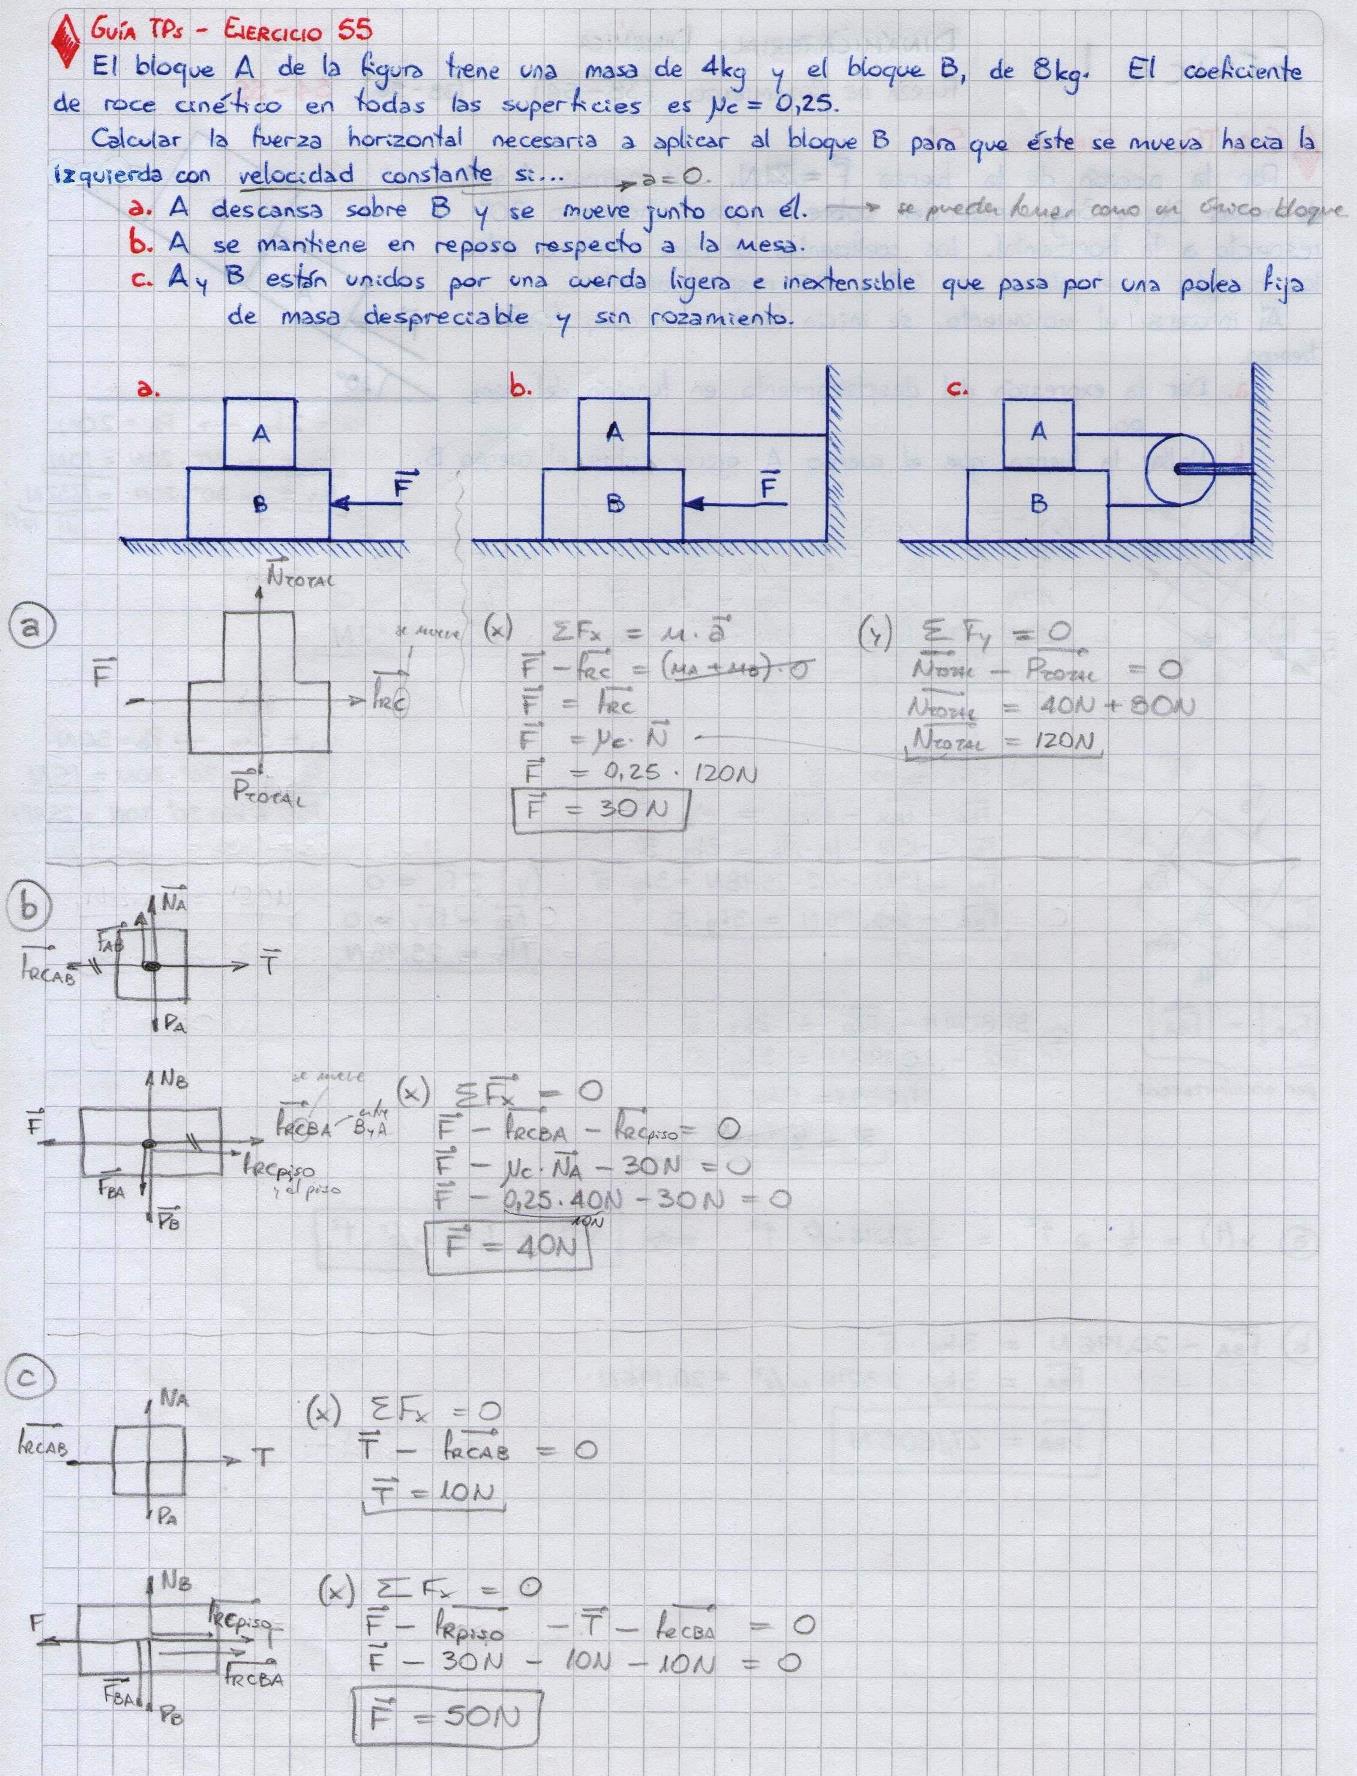 GUÍA TPs - EJERCICIO 55
El bloque A de la figura tiene una masa de 4kg y el bloque B, de 8kg. El coeficiente
de roce cinético en todas las superficies es μc = 0,25.
Calcular la fuerza horizontal necesaria a aplicar al bloque B para que éste se mueva hacia la
izquierda con velocidad constante si... → a=0.
a. A descansa sobre B y se mueve junto con él. → se pueden tomar como un único bloque
b. A se mantiene en reposo respecto a la mesa.
c. A y B están unidos por una cuerda ligera e inextensible que pasa por una polea fija
de masa despreciable y sin rozamiento.
a. b. c.
A A A
B F B F B
a
NTOTAL
se mueve
F
fRC
PTOTAL
(x) ΣFx = m.a
F - fRC = (mA+mB).0
F = fRC
F = μc.N
F = 0,25 . 120N
F = 30N
(y) ΣFy = 0
NTOTAL - PTOTAL = 0
NTOTAL = 40N + 80N
NTOTAL = 120N
b
NA
FAB
fRCAB
T
PA
NB
se mueve
F
fRCBA entre B y A
fRCpiso
y el piso
FBA
PB
(x) ΣFx = 0
F - fRCBA - fRCpiso = 0
F - μc.NA - 30N = 0
F - 0,25.40N - 30N = 0
10N
F = 40N
c
NA
fRCAB
T
PA
(x) ΣFx = 0
T - fRCAB = 0
T = 10N
NB
F
fRCpiso
T
fRCBA
FBA
PB
(x) ΣFx = 0
F - fRpiso - T - fRCBA = 0
F - 30N - 10N - 10N = 0
F = 50N